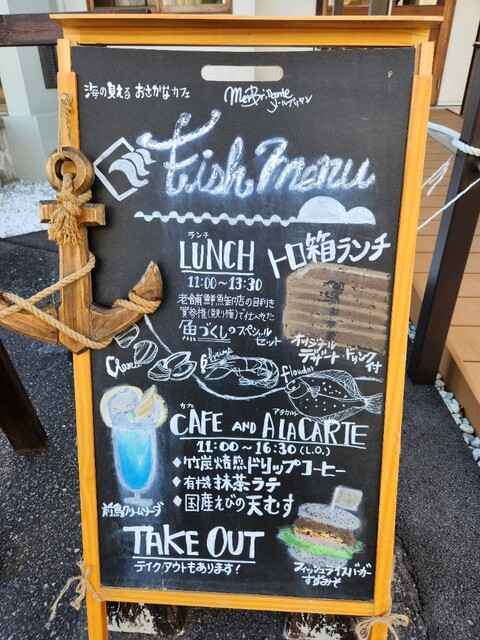 海の見える おさかなカフェ
Mer Brillante
メールブリアン
Fish Menu
ランチ
LUNCH
11:00~13:30
老舗鮮魚卸店の目利き
買参権(競り権)で仕入れた
魚づくしのスペシャル
セット
トロ箱ランチ
オリジナル
デザート・ドリンク付
Shrimp
flounder
カフェ アラカルト
CAFE AND ALACARTE
11:00~16:30(L.O.)
◆竹炭焙煎ドリップコーヒー
◆有機抹茶ラテ
◆国産えびの天むす
前島クリームソーダ
TAKE OUT
テイクアウトもあります!
フィッシュライスバーガー